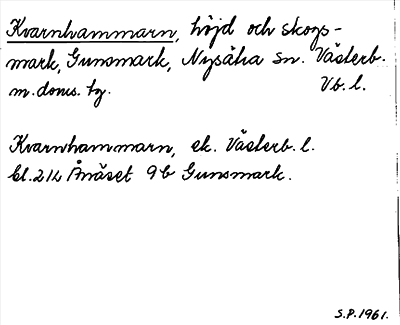 Kvarnhammarn, höjd och skogs-
mark, Gunsmark, Nysätra sn. Västerb.
m. doms. tg. Vb. l.
Kvarnhammarn, ek. Västerb. l.
bl. 214 Ånäset 9b Gunsmark.
S.P. 1961.